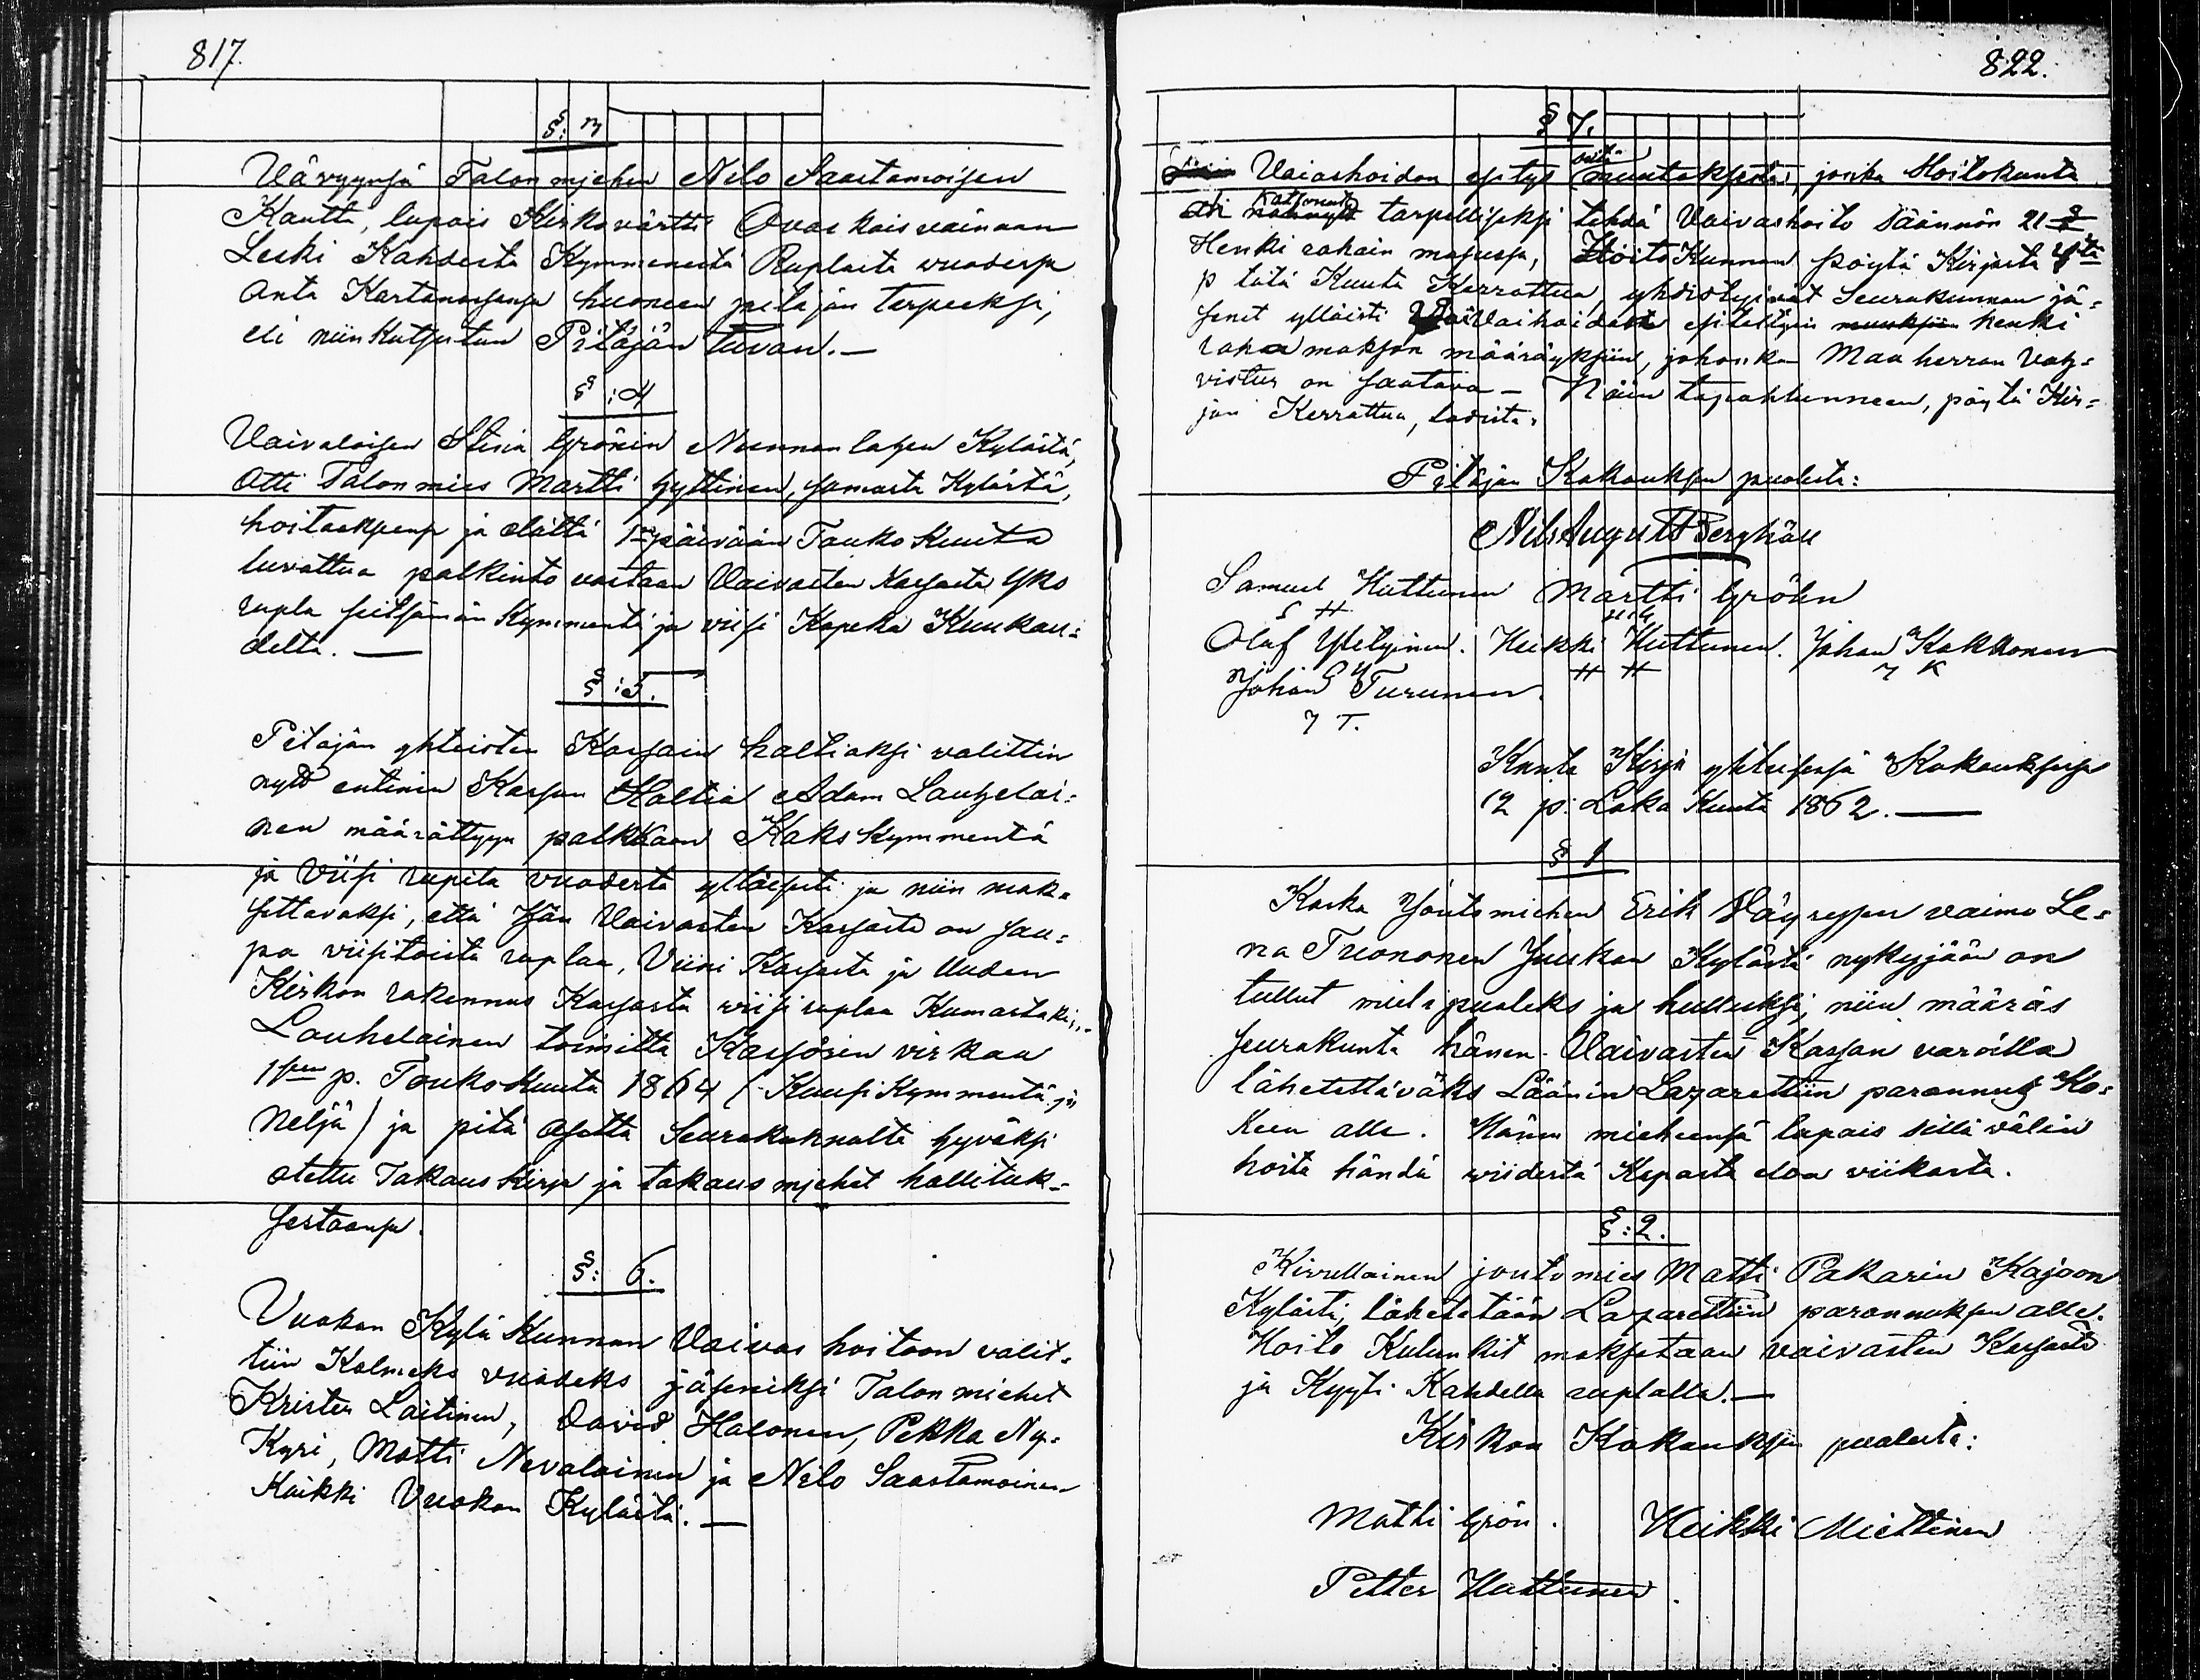 817.
§: 3
Vävyynsä Talon miehen Nilo Saastamoisen
Kautta, lupais Kirkovärtti Ovaskais vainaan
Leski Kahdesta Kymmenestä Ruplasta vuodessa
anta Kartanossansa huoneen pitäjän tarpeeksi,
eli niin kutsutun Pitäjän tuvan. —
§: 4
Vaivaloisen Stina Grönin Nunnanlahen Kylästä,
Otti Talon mies Martti Hyttinen, samasta Kylästä,
hoitaaksensa ja elättä 1 päivään Touko Kuuta
luvattua palkinto vastaan Vaivasten Kassasta Yks
rupla seitsämän Kymmentä ja viisi Kopeka Kuukau=
delta. —
§: 5.
Pitäjän yhteisten Kassain haltiaksi valittin
nyt entinen Kassan Haltia Adam Lauhelai=
nen määrättyyn palkkaan Kakskymmentä
ja Viisi rupila vuodesta ylläisesti ja niin mak=
settavaksi, että hän Vaivasten Kassasta on saa=
pa viisitoista ruplaa, Viini Kassasta ja Uuden
Kirkon rakennus Kassasta viisi ruplaa Kumastaki,
Lauhelainen toimitta Kassörin virkaa
1sen p. Touko Kuuta 1864 (Kuusi Kymmentä ja
Neljä) ja pitä asetta Seurakunnalta hyväksi
otettu Takaus Kirja ja takaus miehet hallituk=
sestaansa.
§: 6.
Vuokon Kylä Kunnan Vaivas hoitoon valit=
tiin Kolmeks vuodeks jäseniksi Talon miehet
Krister Laitinen, David Halonen, Pekka Ny=
Kyri, Matti Nevalainen ja Nilo Saastamoinen
Kaikki Vuokon Kylästä. —
822.
§ 7.
Vaivashoidon esitys siitä muutoksesta, jonka Hoitokunta
oli katsonut tarpelliseksi tehdä Vaivashoito säännön 21 §
Henki rahain maksussa, Hoito Kunnan pöytä Kirjasta
p tätä Kuuta Kerrottua, yhdistyivät Seurakunnan jä=
senet ylläisti Vaivaihoidasta esitettyin henki
raha makson määräyksiin, johonka Maa herran Vah=
vistus on saatava — Näin tapahtunneen, pöytä Kir=
jan Kerrottua, todista.
Pitäjän Kokouksen puolesta:
Nils August Berghäll
Samuel Huttunen Martti Gröhn
S H
Olaf Yletyinen. Heikki Huttunen. Johan Kokkonen
H H J K
Johan Turunen.
J T.
Kunta Kirja yhteisessä Kokouksessa
12 p: Loka Kuuta 1862. —
§ 1
Koska Joutsmiehen Erik Väyrysen vaimo Le=
na Tuononen Juukan Kylästä nykyjään on
tullut mieli puoleks ja hulluksi, niin määräs
seurakunta hänen Vaivasten Kassan varoilla
lähetettäväks Läänin Lazarettiin parannus Ko=
keen alle. Hänen miehensä lupais sillä välin
hoita händä viidestä Kapasta eloa viikosta.
§: 2.
Kivullainen joutomies Matti Pakarin Kajoon
Kylästä, lähetetään Lazarettiin parannuksen alle.
Hoito Kulunkit maksetaan vaivasten Kassasta
ja Kyyti Kahdella ruplalla. —
Kirkon Kokouksen puolesta:
Matti Grön. Heikki Miettinen
Petter Huttunen.